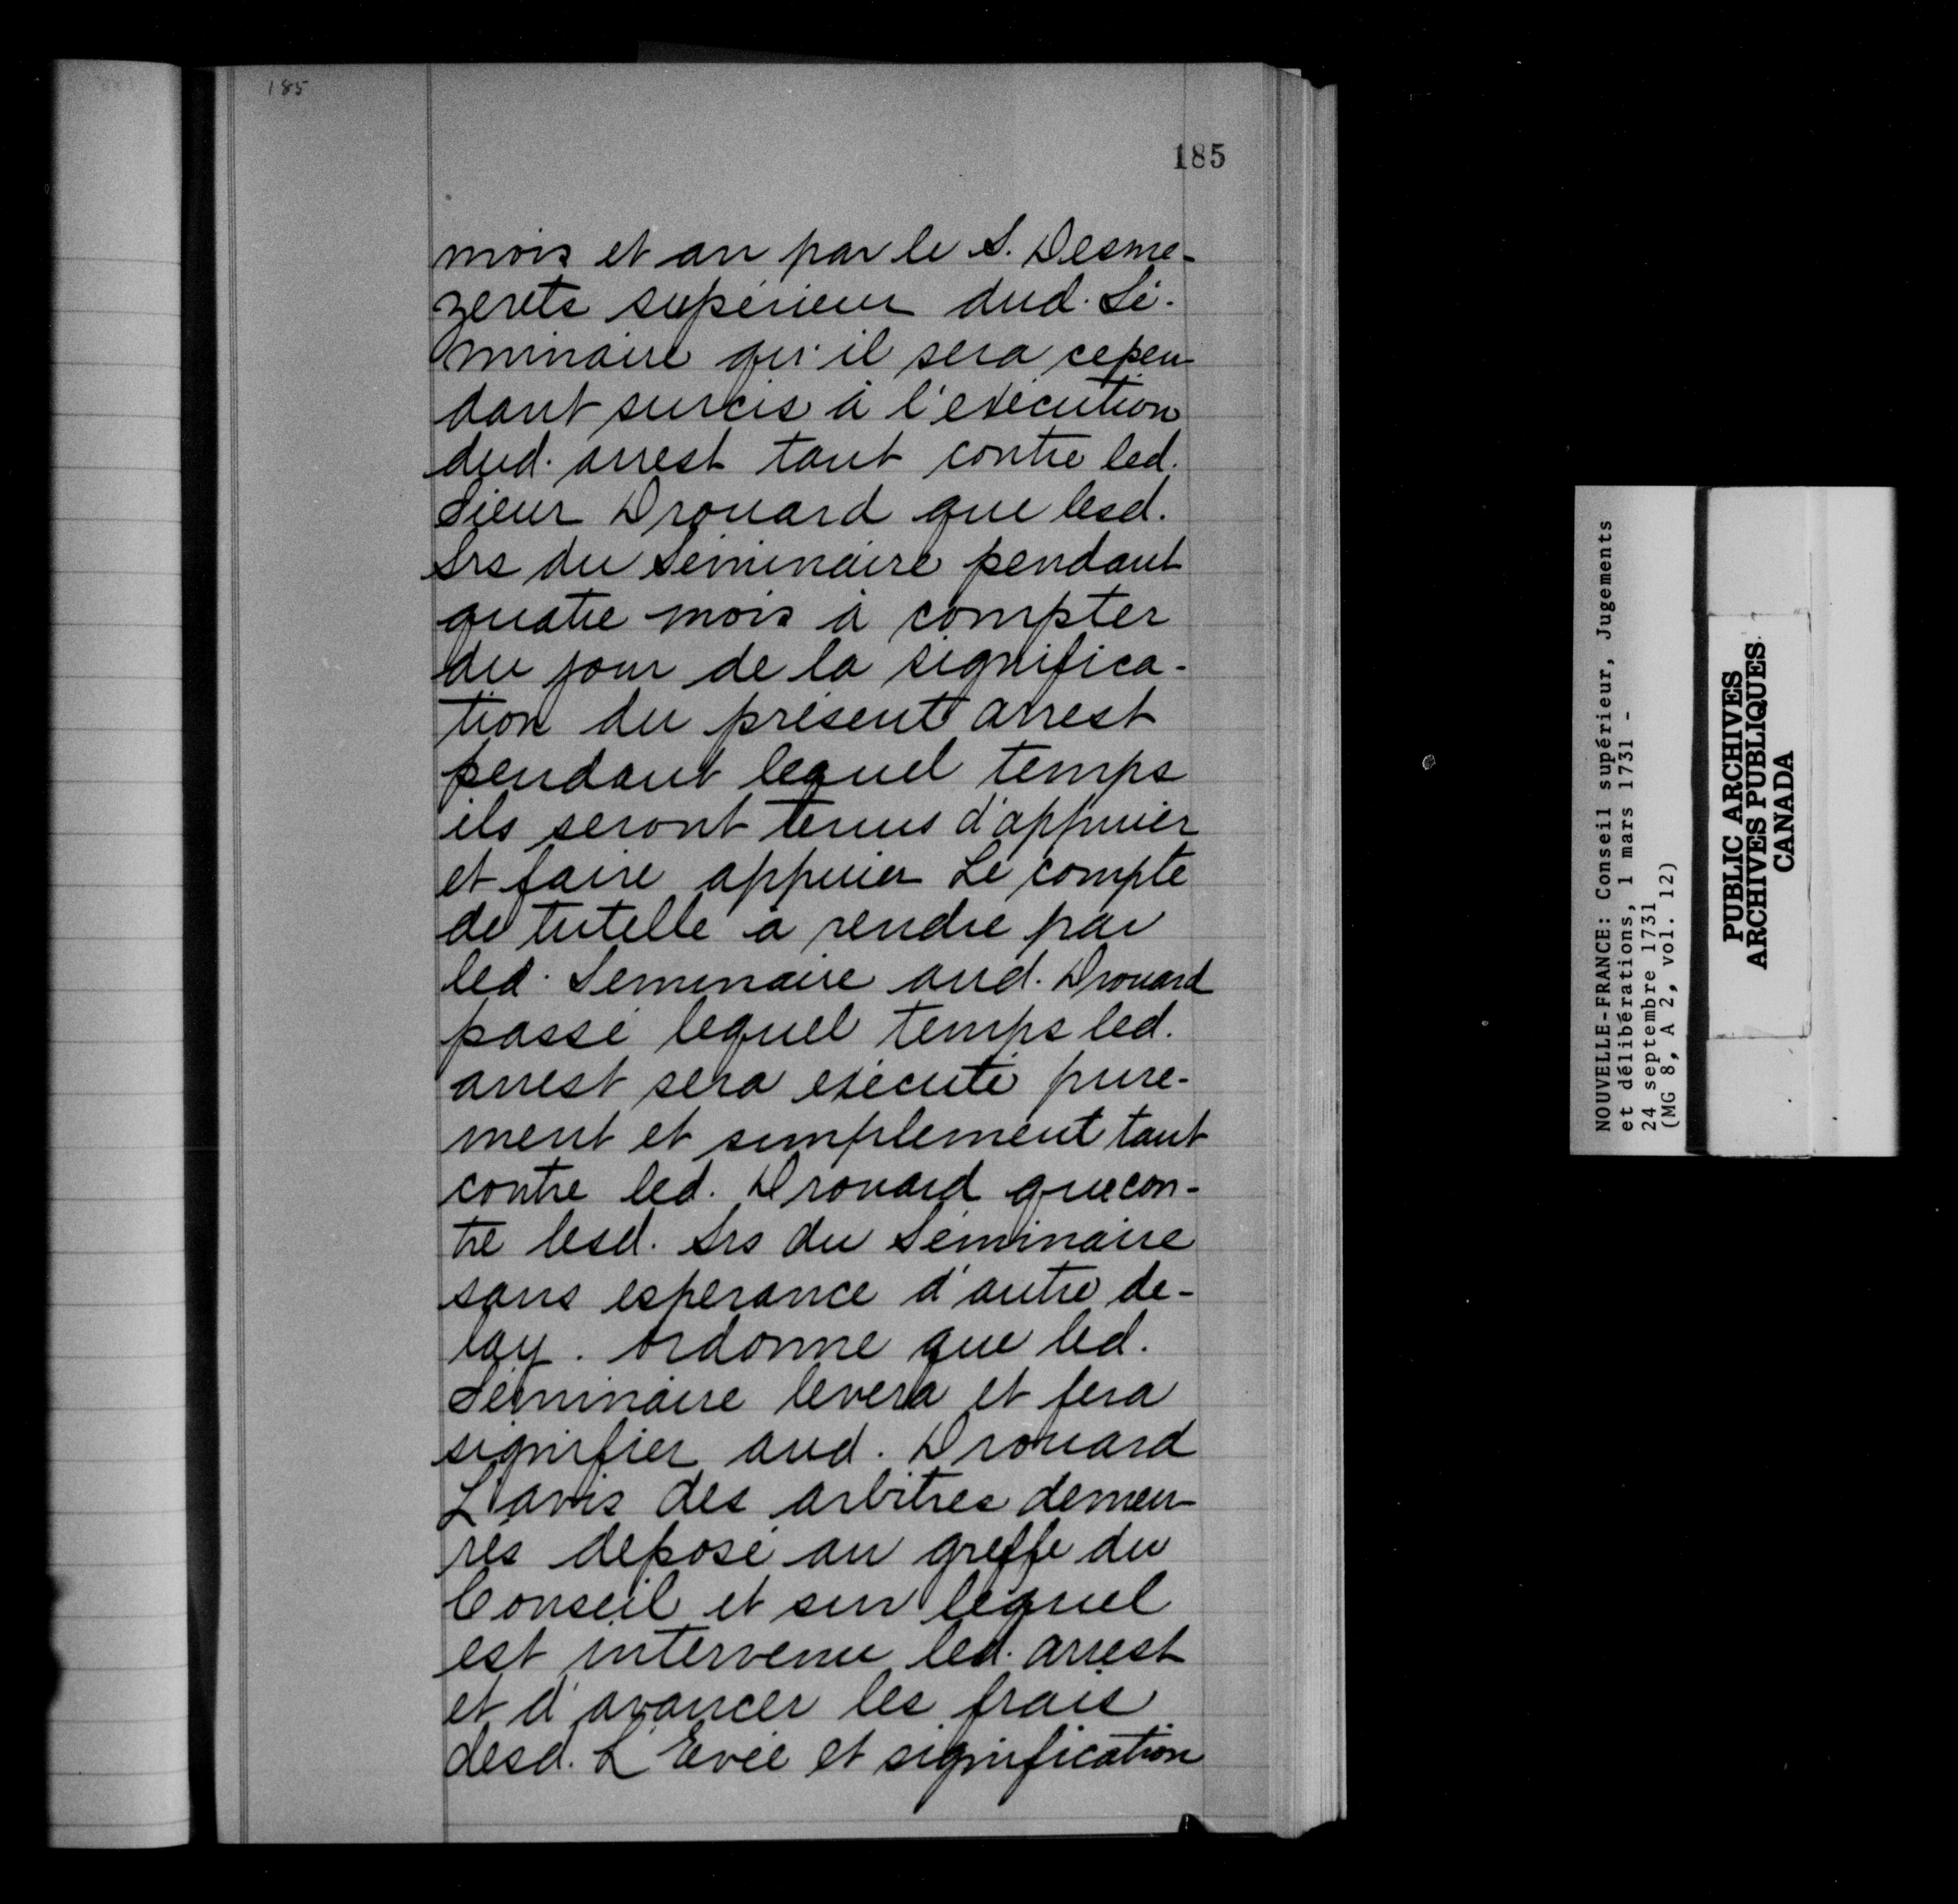 185
185
mois et an par le S. Desme-
zerets supérieur dud. Sé-
minaire qu'il sera cepen-
dant surcis à l'exécution
dud. arrest tant contre led.
Sieur Drouard que lesd.
Srs du Séminaire pendant
quatre mois à compter
du jour de la significa-
tion du présent arrest
pendant lequel temps
ils seront tenus d'appuier
et faire appuier Le compte
de tutelle à rendre par
led. Seminaire aud. Drouard
passé lequel temps led.
arrest sera exécuté pure-
ment et simplement tant
contre led. Drouard que con-
tre lesd. Srs du Séminaire
sans esperance d'autre de-
lay. ordonne que led.
Séminaire levera et fera
signifier aud. Drouard
L'avis des arbitres demeu-
rés déposé au greffe du
Conseil et sur lequel
est intervenu led. arrest
et d'avancer les frais
desd. L'Evée et signification
NOUVELLE-FRANCE: Conseil supérieur, Jugements
et délibérations, 1 mars 1731 -
24 septembre 1731
(MG 8, A 2, vol. 12)
PUBLIC ARCHIVES
ARCHIVES PUBLIQUES
CANADA